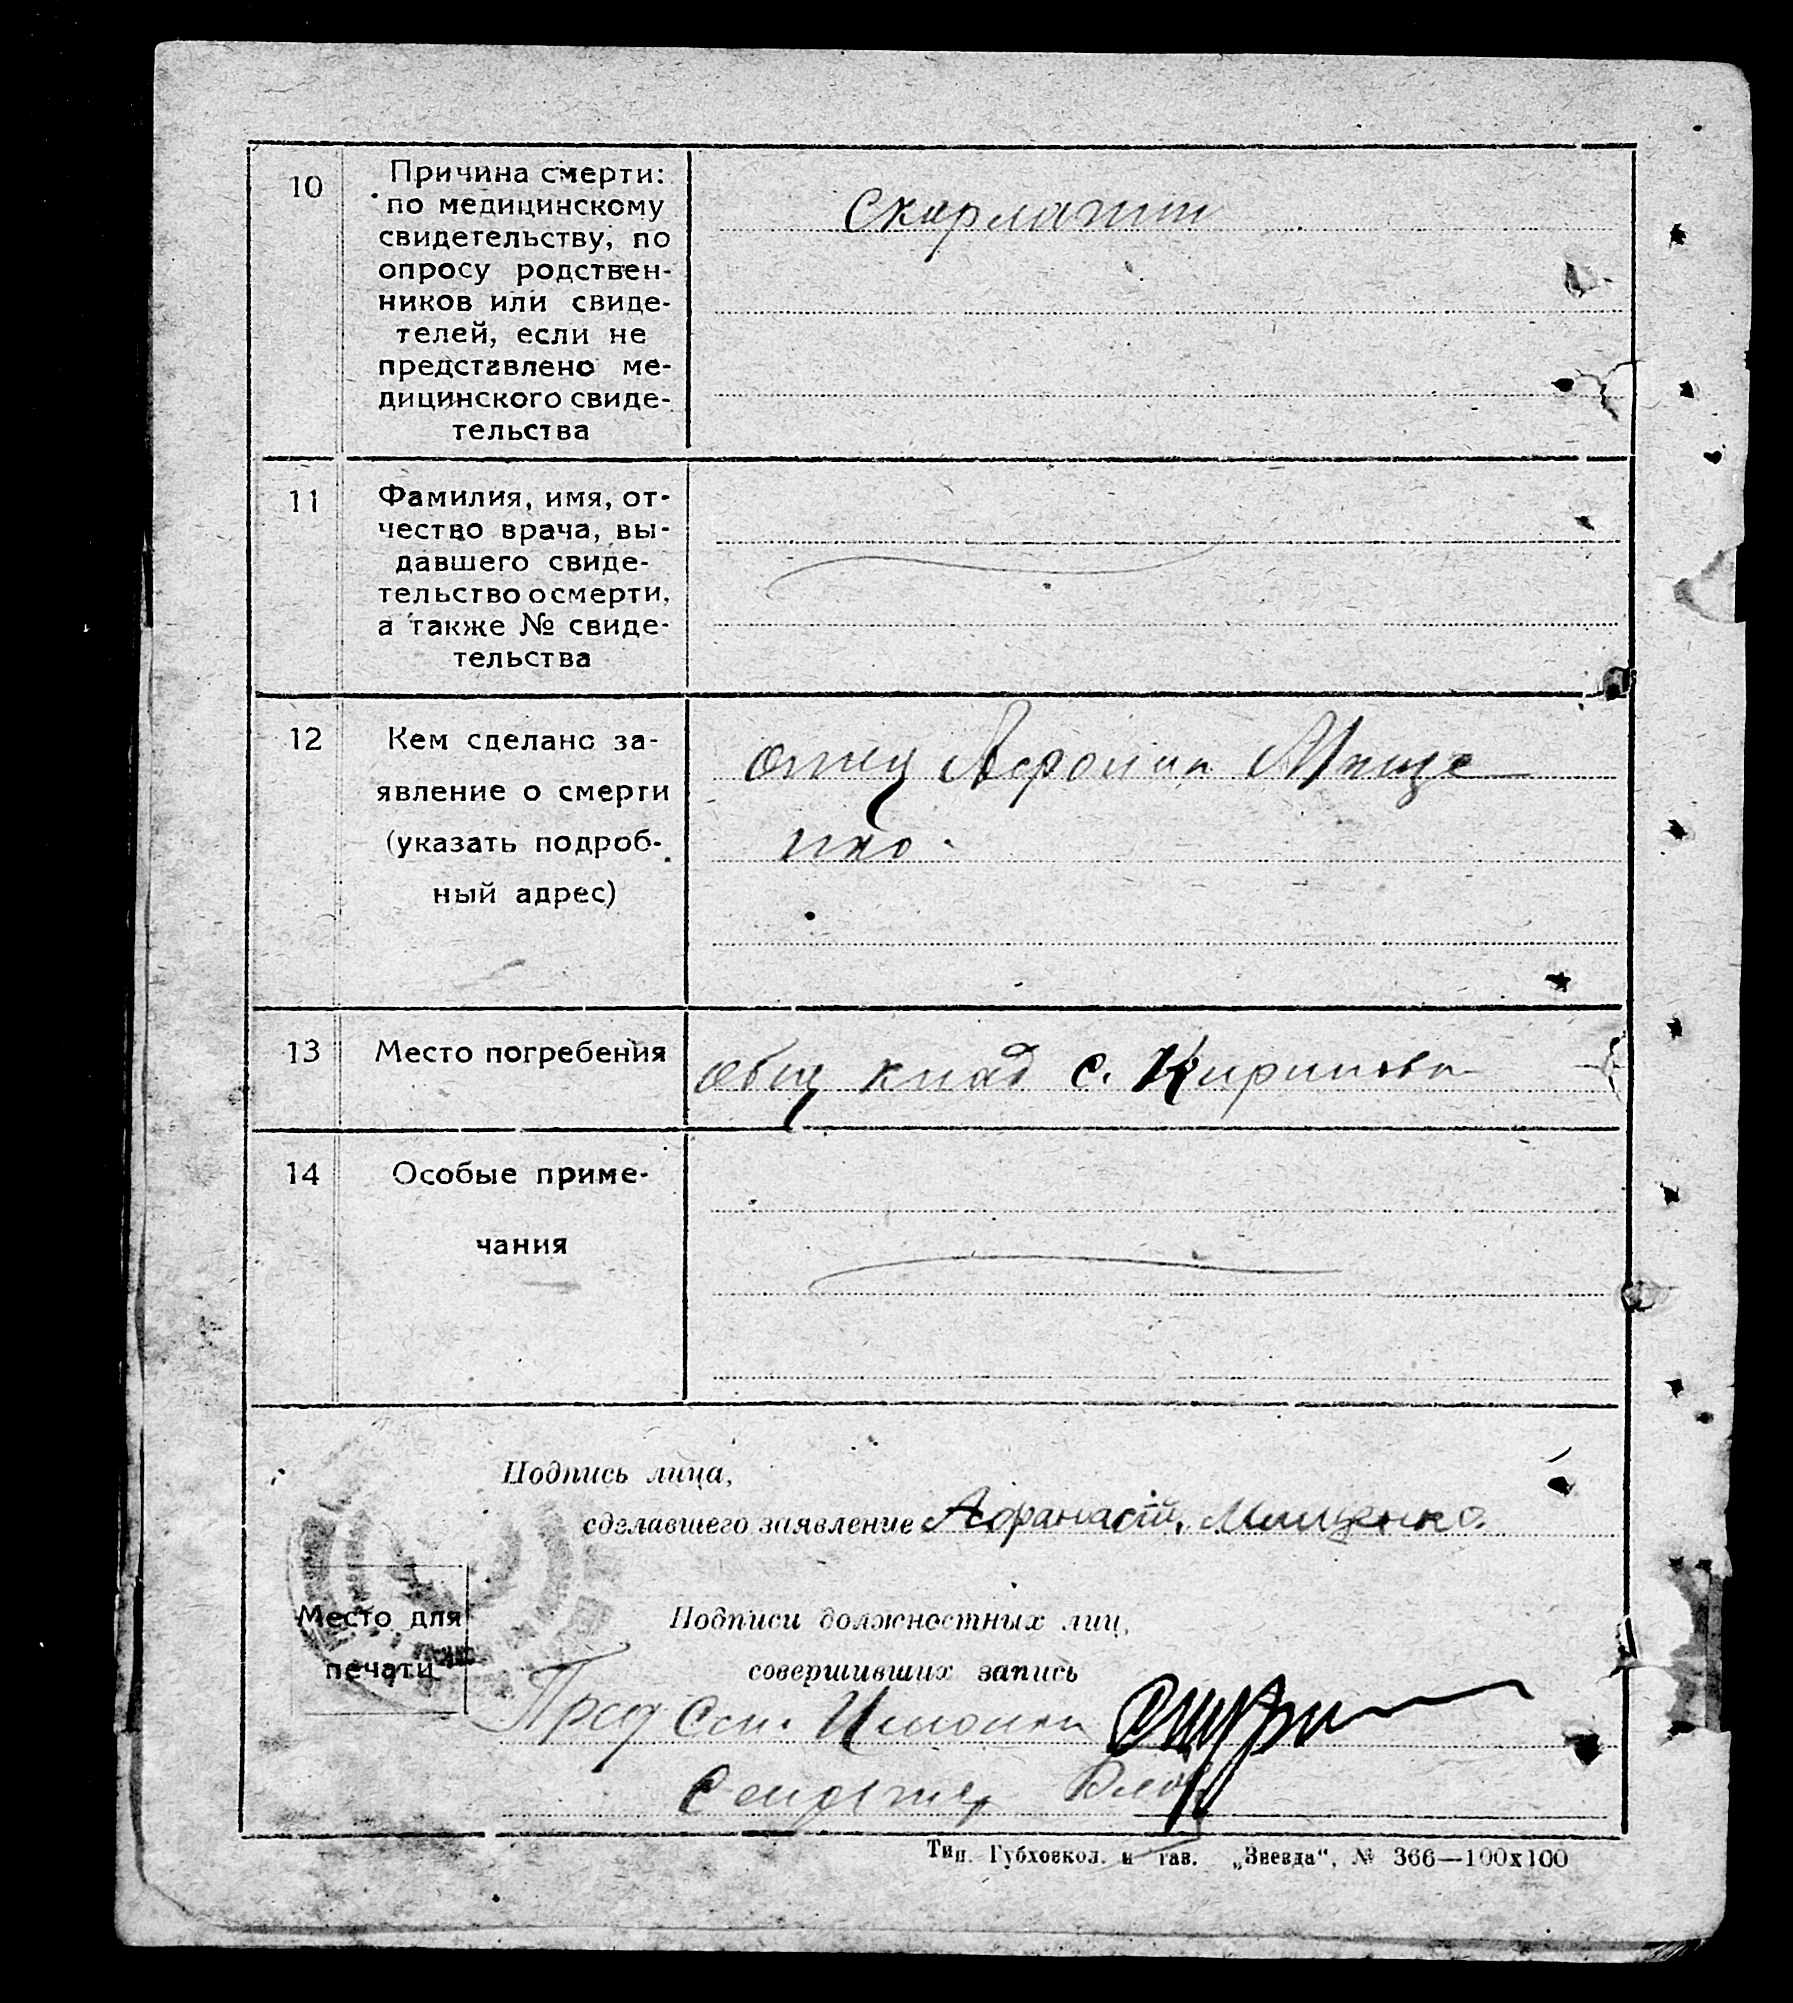 10
Причина смерти:
по медицинскому
свидетельству, по
опросу родствен-
ников или свиде-
телей, если не
представлено ме-
дицинского свиде-
тельства
Скарлатин
11
Фамилия, имя, от-
чество врача, вы-
давшего свиде-
тельство о смерти,
а также № свиде-
тельства
12
Кем сделано за-
явление о смерти
(указать подроб-
ный адрес)
отец Мище
нко.
13
Место погребения
общ клад с.
14
Особые приме-
чания
Подпись лица,
сделавшего заявление Афанасій Мищенко.
Место для
печати
Подписи должностных лиц,
совершивших запись
Пред
Тип. Губховкол. и гав. „Звезда“, № 366—100х100